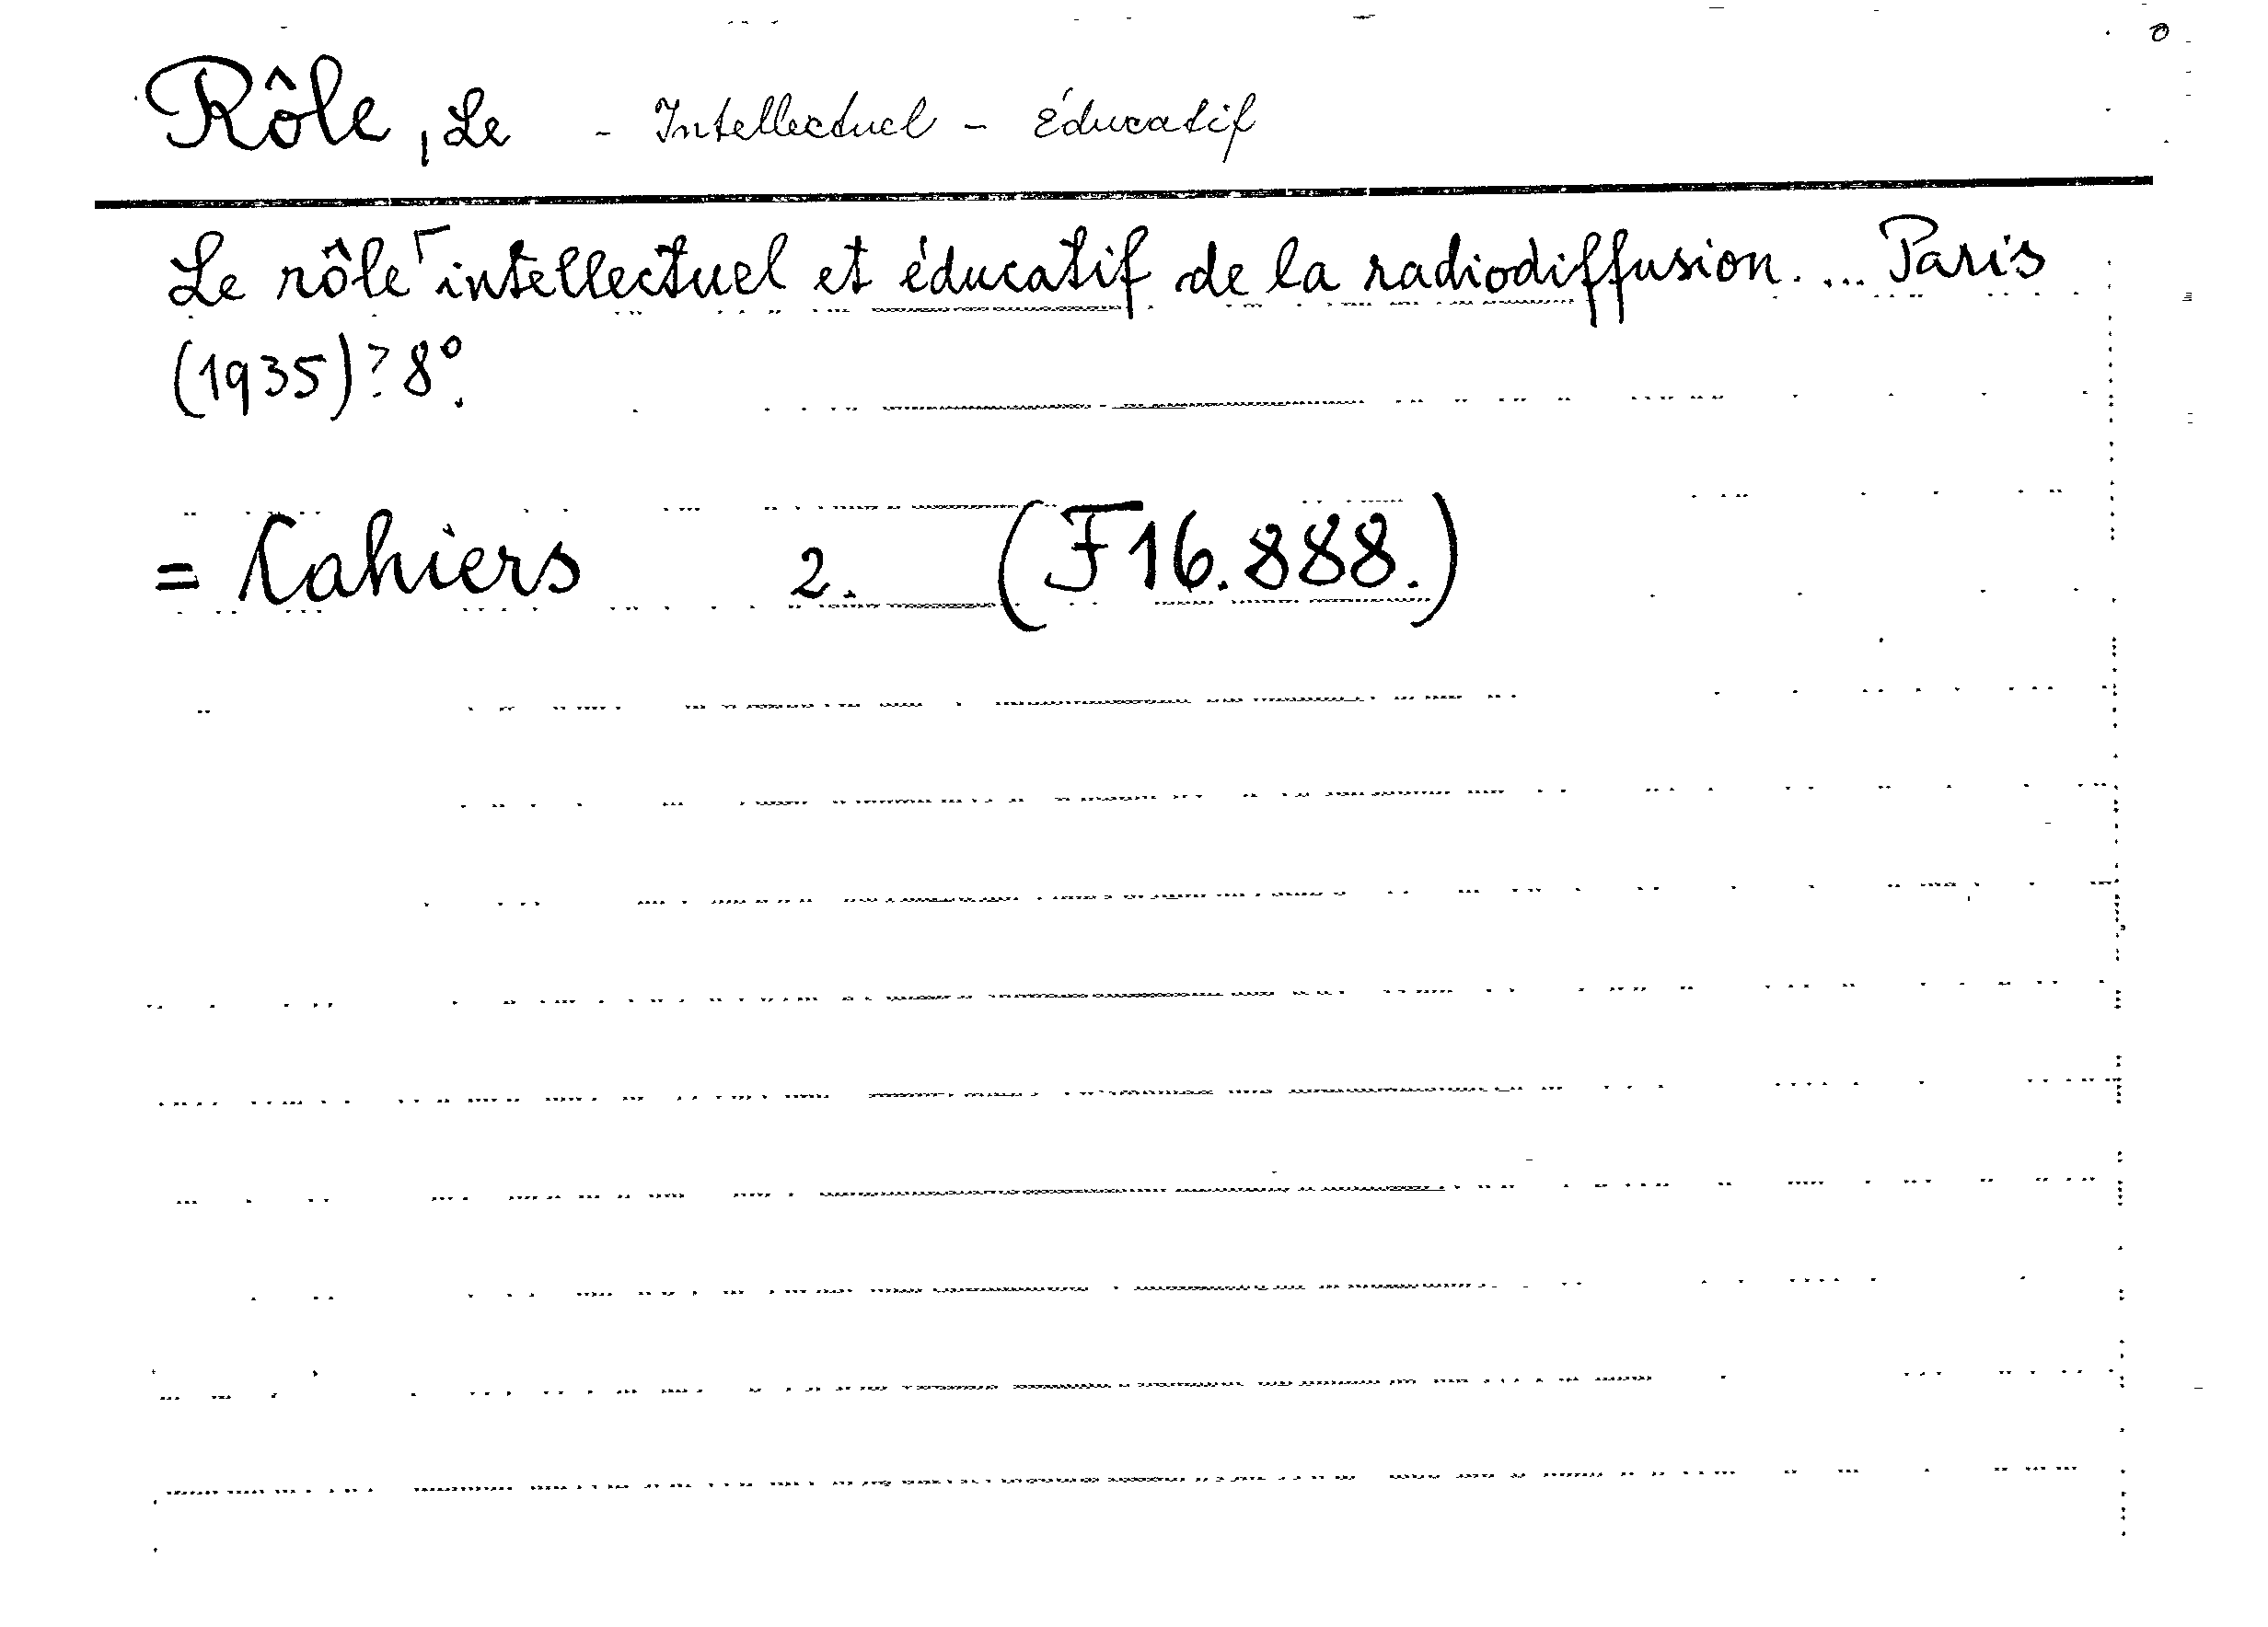 Rôle, Le - Intellectuel - Éducatif
Le rôle intellectuel et éducatif de la radiodiffusion. ... Paris
(1935)? 8°.
= Cahiers 2. (F16.888.)